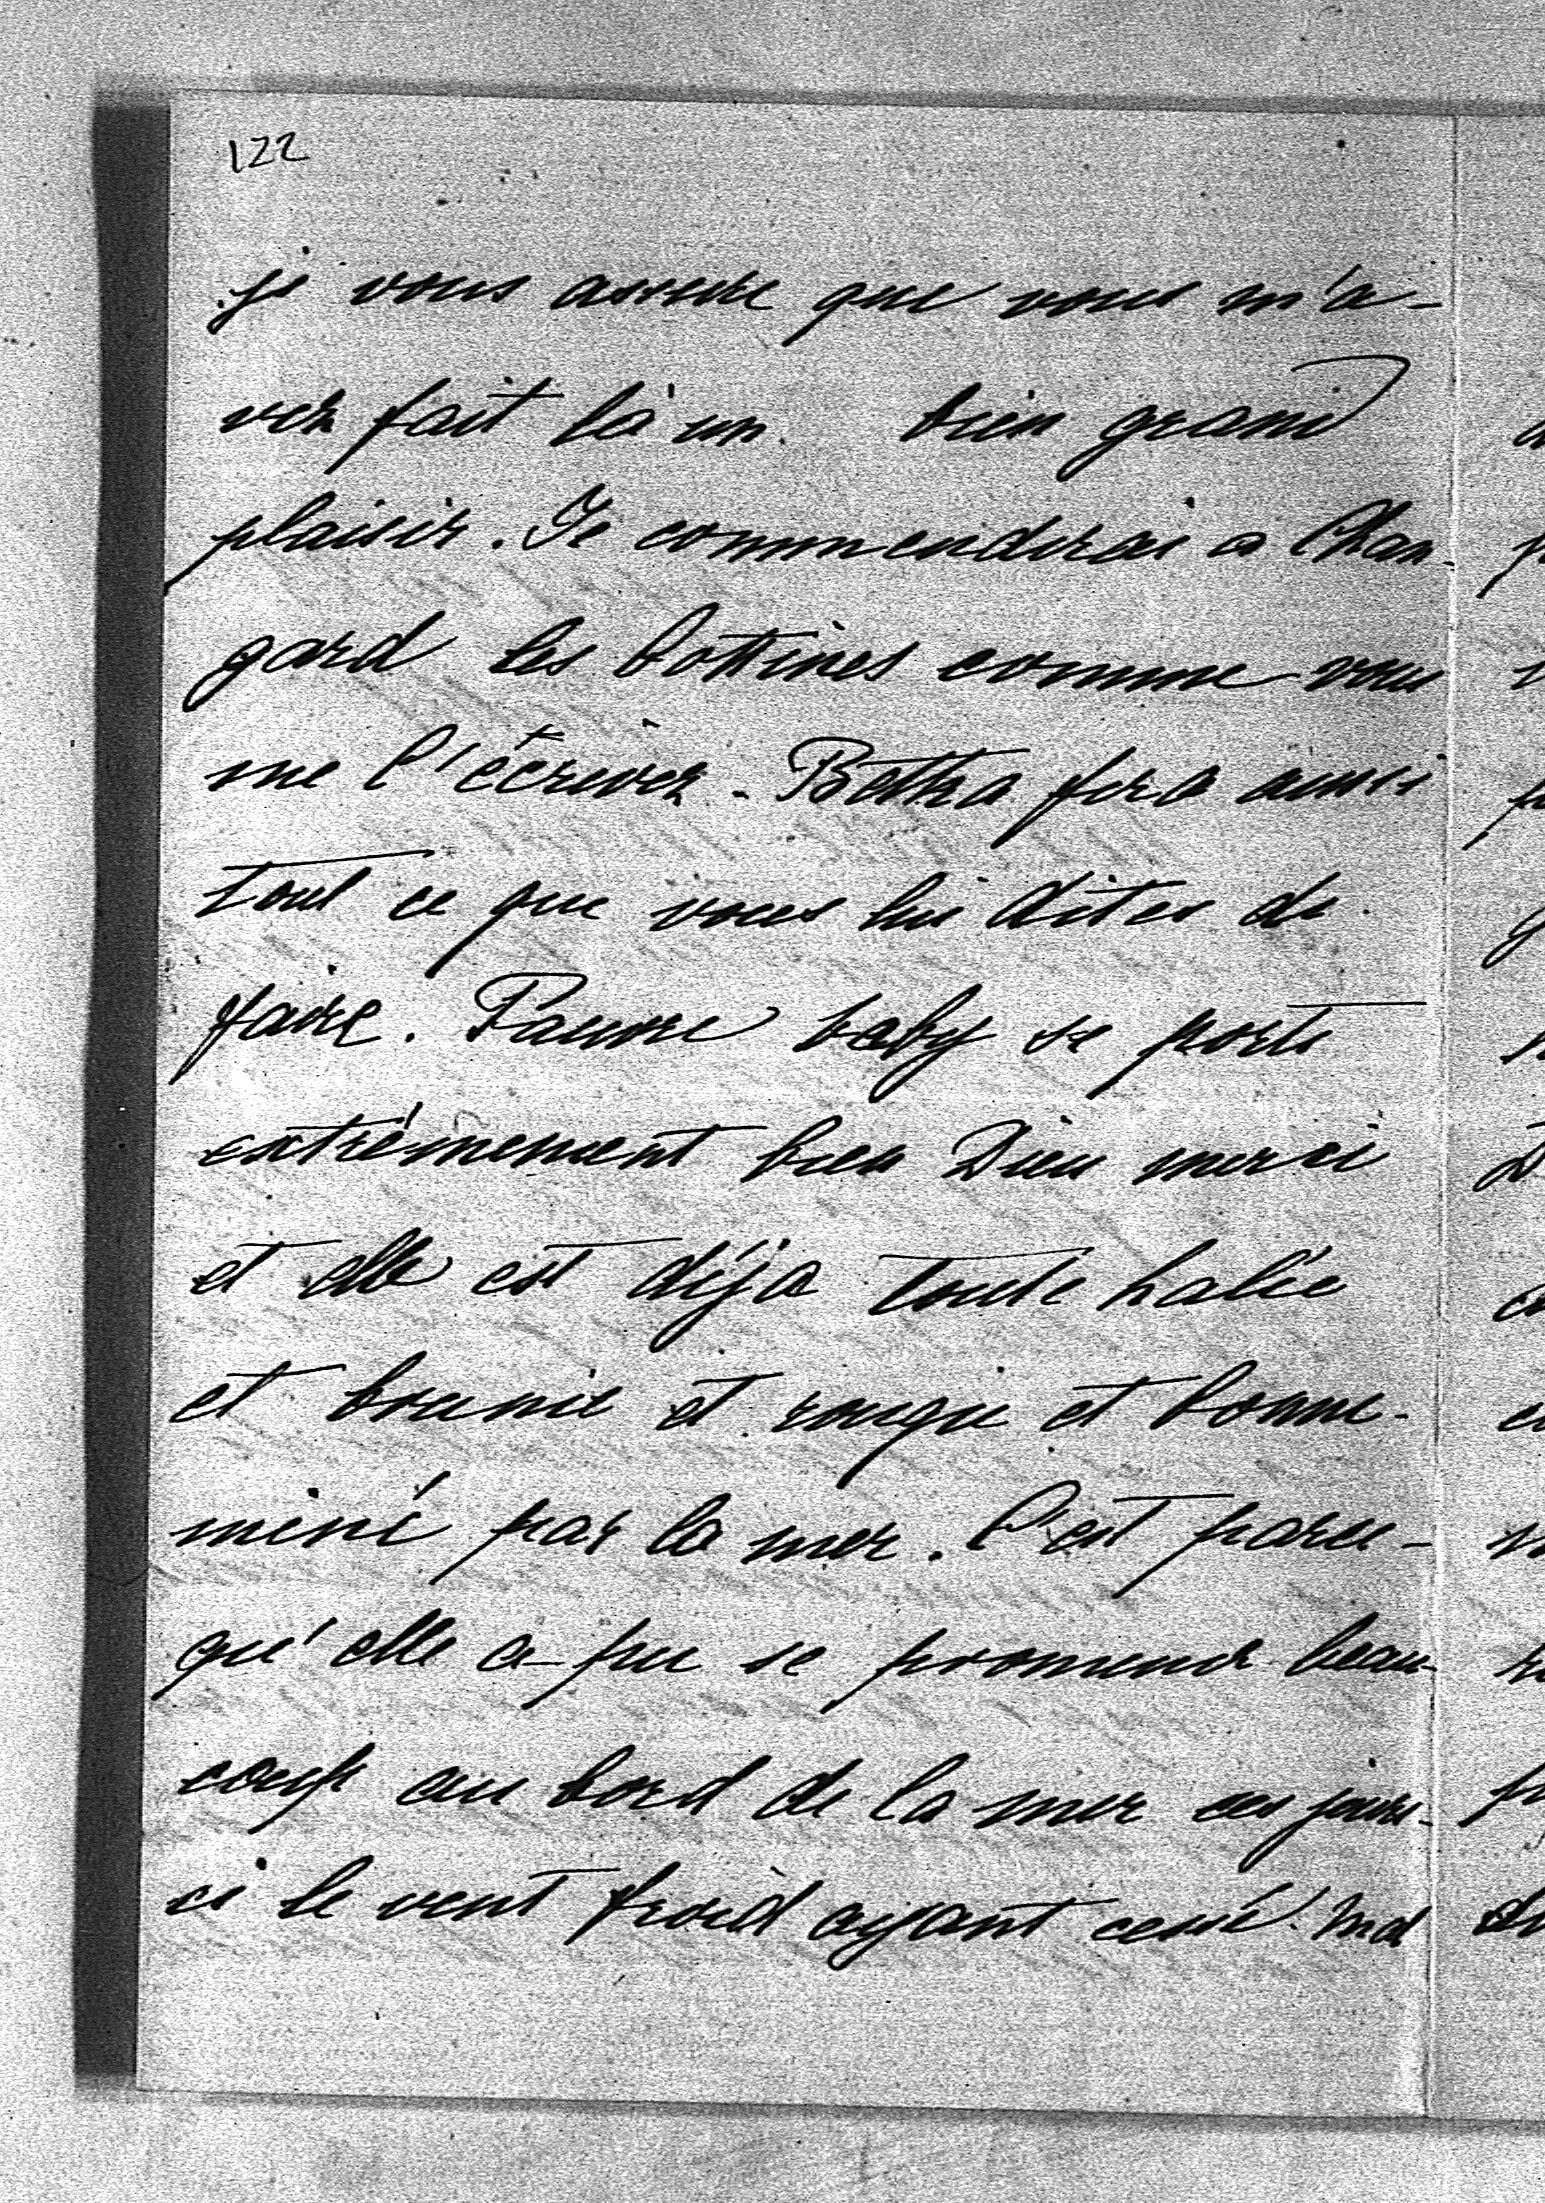 122
je vous assure que vous m'a-
vez fait là un bien grand
plaisir. Je commenderai a Chan-
gard les bottines comme vous
me l'écrivez. Bettza fera aussi
tout ce que vous lui dites de
faire. Pauvre baby se porte
extrêmement bien Dieu merci
et elle est déja toute halée
et brunie et rougie et bonne-
miné par la mer. C'est parce-
qu'elle a pu se promener beau-
coup au bord de la mer ces jours-
ci le vent froid ayant cessé. Ma